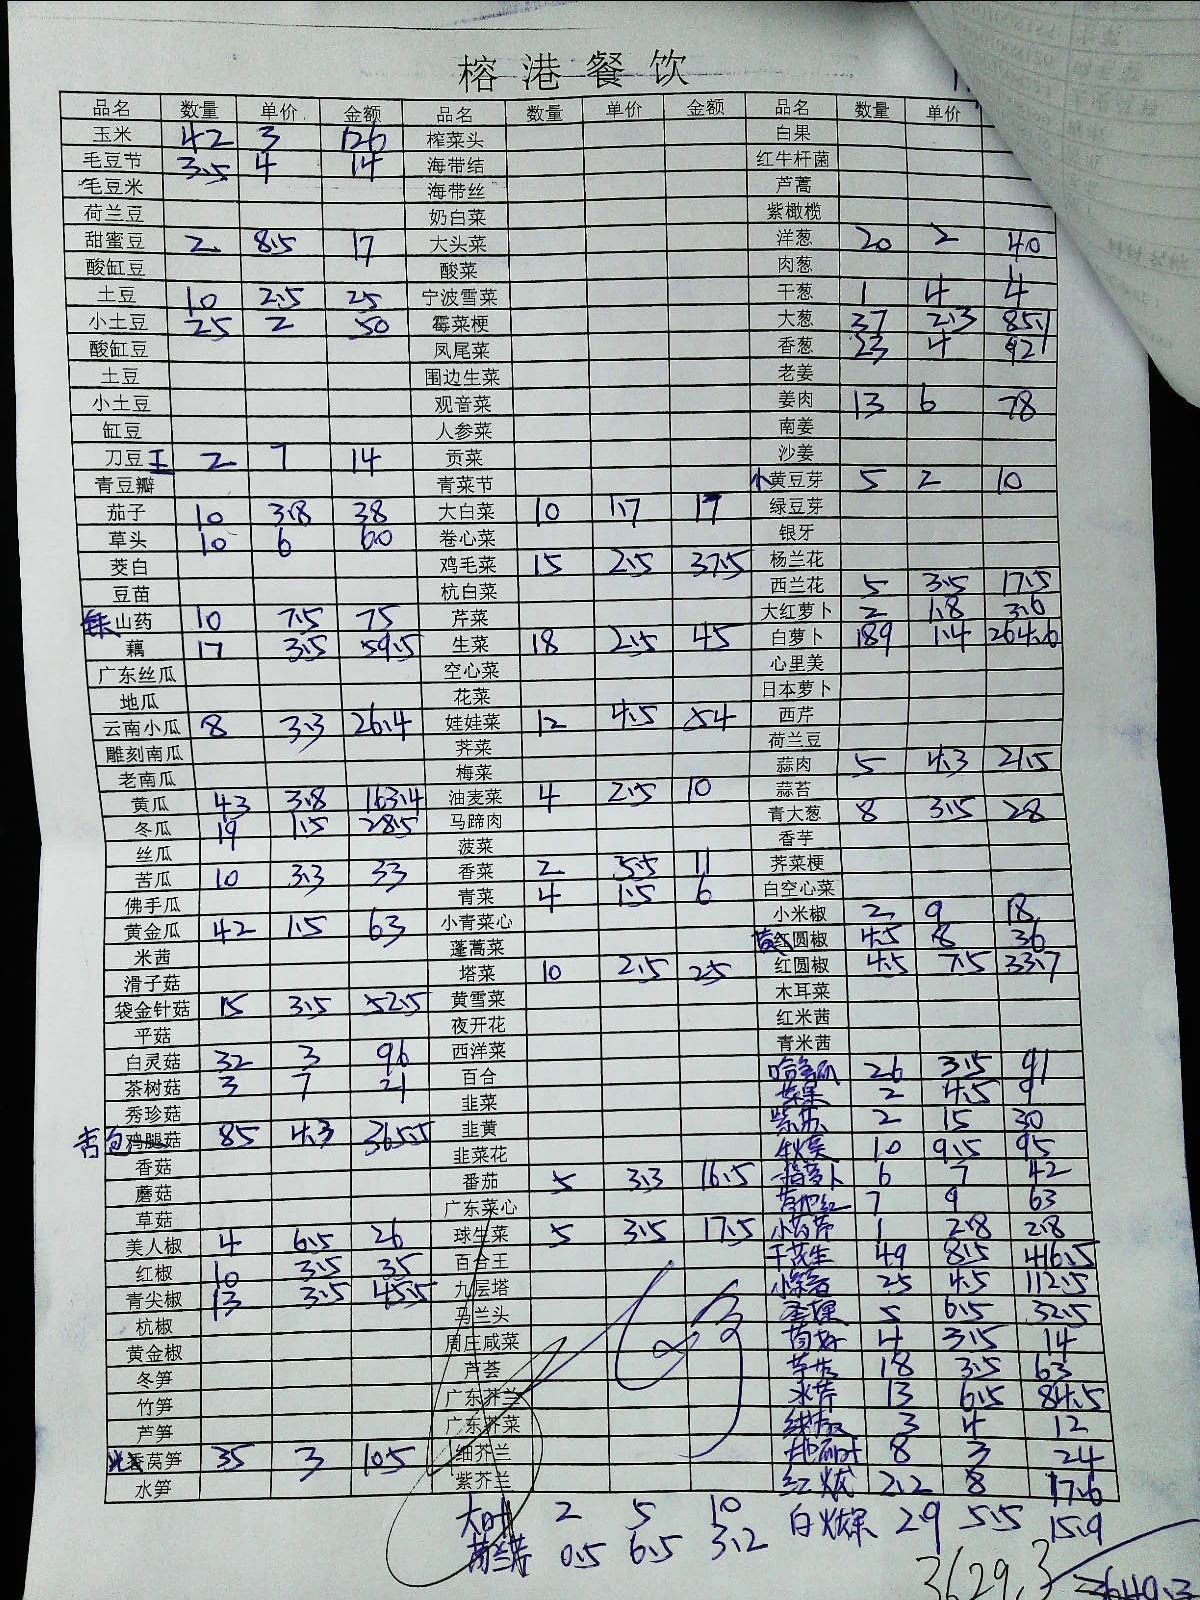 榕港餐饮
品名 数量 单价 金额 品名 数量 单价 金额 品名 数量 单价
玉米 42 3 126 榨菜头 白果
毛豆节 3.5 4 14 海带结 红牛杆菌
毛豆米 海带丝 芦蒿
荷兰豆 奶白菜 紫橄榄
甜蜜豆 2 8.5 17 大头菜 洋葱 20 2 40
酸缸豆 酸菜 肉葱
土豆 10 2.5 25 宁波雪菜 干葱 1 4 4
小土豆 25 2 50 霉菜梗 大葱 37 2.3 85.1
酸缸豆 凤尾菜 香葱 23 4 92
土豆 围边生菜 老姜
小土豆 观音菜 姜肉 13 6 78
缸豆 人参菜 南姜
刀豆王 2 7 14 贡菜 沙姜
青豆瓣 青菜节 小黄豆芽 5 2 10
茄子 10 3.8 38 大白菜 10 1.7 17 绿豆芽
草头 10 6 60 卷心菜 银牙
茭白 鸡毛菜 15 2.5 37.5 杨兰花
豆苗 杭白菜 西兰花 5 3.5 17.5
铁山药 10 7.5 75 芹菜 大红萝卜 2 1.8 3.6
藕 17 3.5 59.5 生菜 18 2.5 45 白萝卜 189 1.4 264.6
广东丝瓜 空心菜 心里美
地瓜 花菜 日本萝卜
云南小瓜 8 3.3 26.4 娃娃菜 12 4.5 54 西芹
雕刻南瓜 荠菜 荷兰豆
老南瓜 梅菜 蒜肉 5 4.3 21.5
黄瓜 43 3.8 163.4 油麦菜 4 2.5 10 蒜苔
冬瓜 19 1.5 28.5 马蹄肉 青大葱 8 3.5 28
丝瓜 菠菜 香芋
苦瓜 10 3.3 33 香菜 2 5.5 11 荠菜梗
佛手瓜 青菜 4 1.5 6 白空心菜
黄金瓜 42 1.5 63 小青菜心 小米椒 2 9 18
米茜 蓬蒿菜 黄红圆椒 4.5 8 36
滑子菇 塔菜 10 2.5 25 红圆椒 4.5 7.5 33.7
袋金针菇 15 3.5 52.5 黄雪菜 木耳菜
平菇 夜开花 红米茜
白灵菇 32 3 96 西洋菜 青米茜
茶树菇 3 7 21 百合 哈密瓜 26 3.5 91
秀珍菇 韭菜 苹果 2 4.5 9
杏包鸡腿菇 85 4.3 365.5 韭黄 紫苏 2 15 30
香菇 韭菜花 秋葵 10 9.5 95
蘑菇 番茄 5 3.3 16.5 指萝卜 6 7 42
草菇 广东菜心 7 9 63
美人椒 4 6.5 26 球生菜 5 3.5 17.5 1 2.8 2.8
红椒 10 3.5 35 百合王 干花生 49 8.5 416.5
青尖椒 13 3.5 45.5 九层塔 25 4.5 112.5
杭椒 马兰头 圣果 5 6.5 32.5
黄金椒 周庄咸菜 4 3.5 14
冬笋 芦荟 18 3.5 63
竹笋 广东芥兰 水芹 13 6.5 84.5
芦笋 广东芥菜 3 4 12
香莴笋 35 3 105 细芥兰 8 3 24
水笋 紫芥兰 2.2 8 17.6
大叶 2 5 10 2.9 5.5 15.9
荷兰芹 0.5 6.5 3.2
3629.3 3649.3